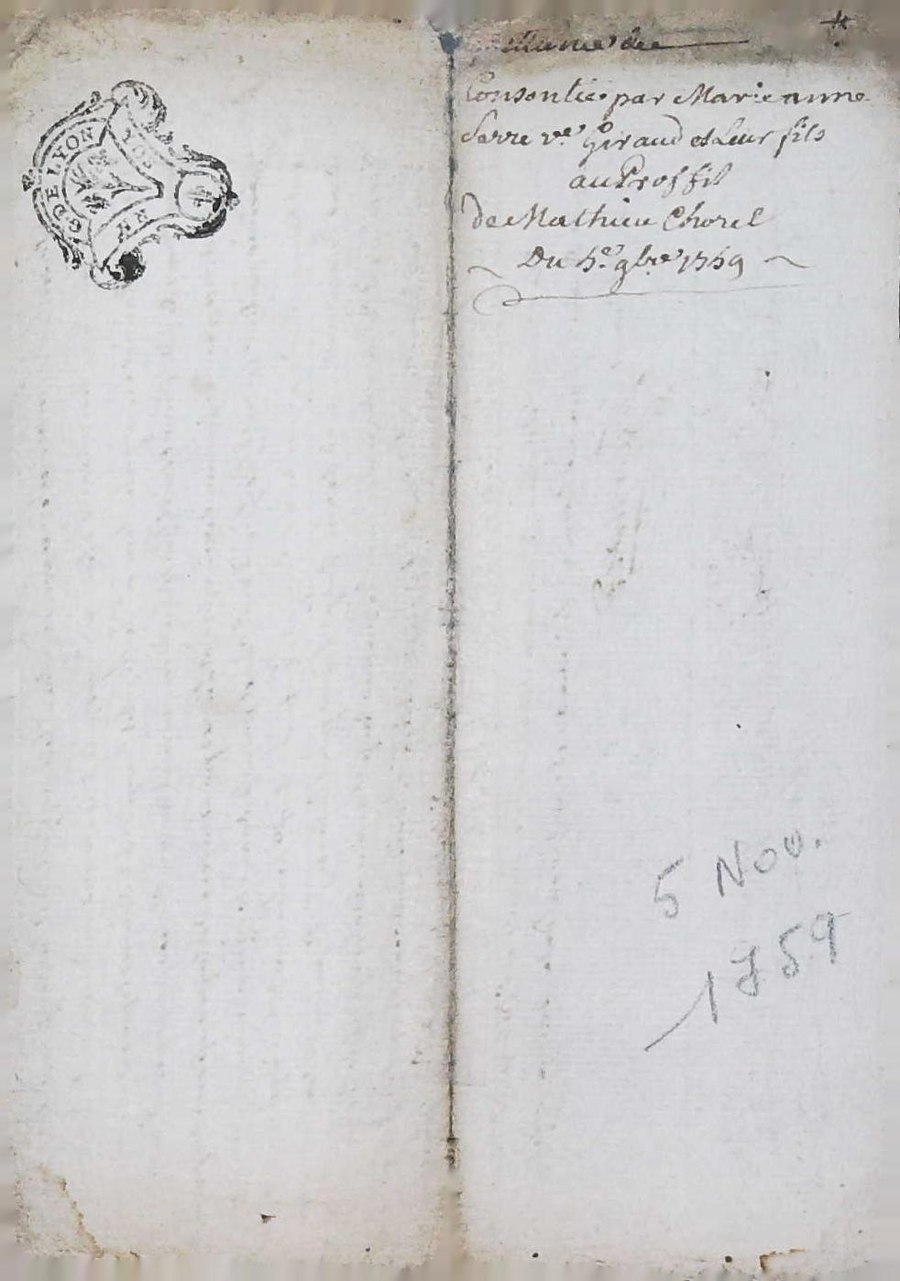 G. DE LYON
Consentie par Marie anne
Serre v.e Giraud et Leur fils
au Proffit
de Mathieu Chorel
Du 5.e 9bre 1759
5 Nov.
1759